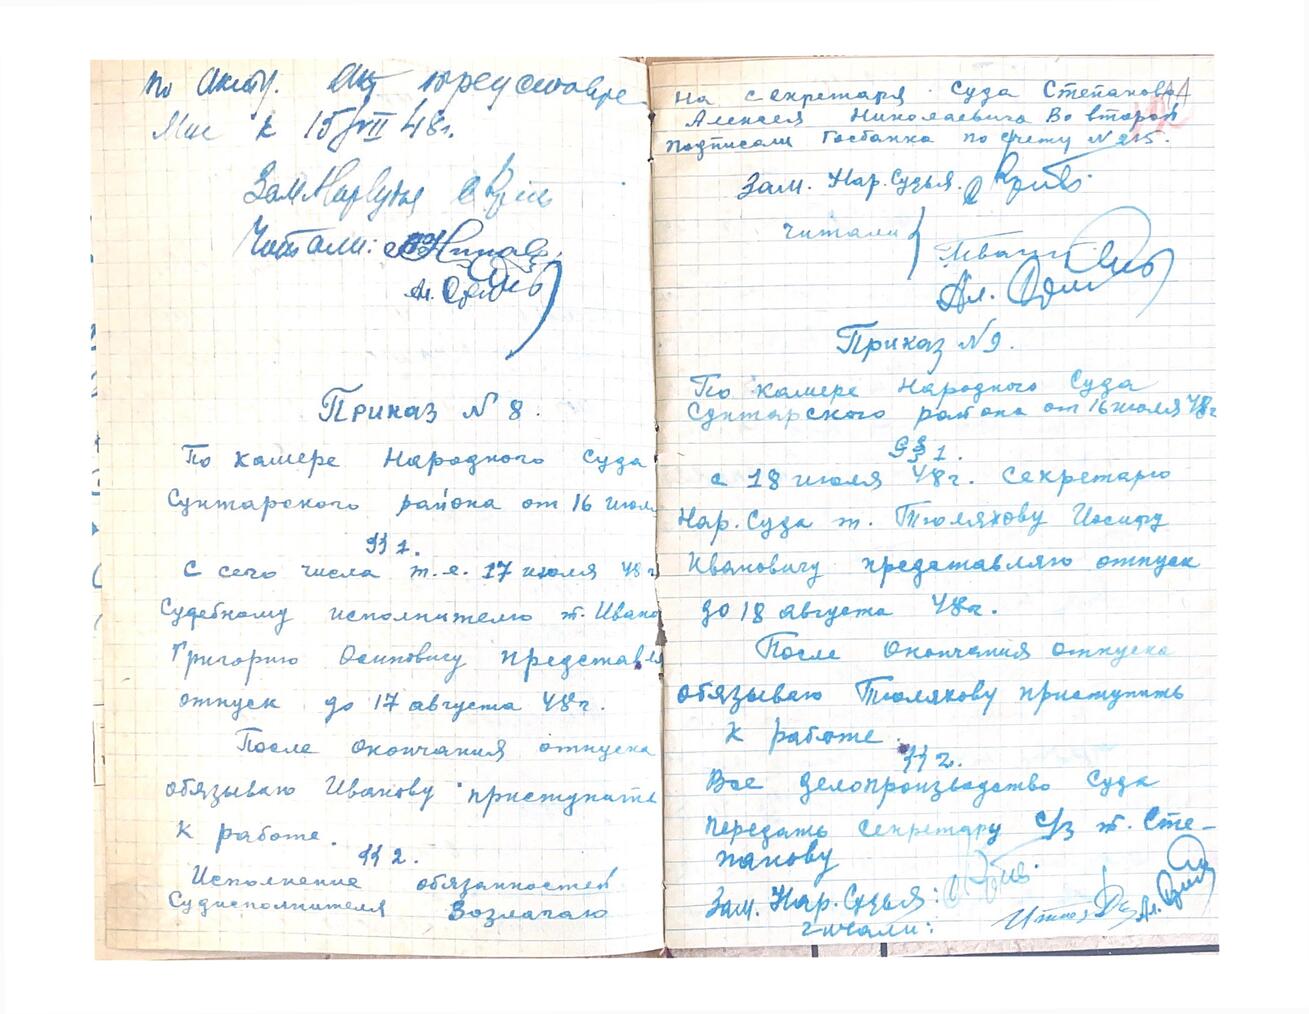 по Акту. Акт представле
мне к 15/VII 48г.
Зам Нарсудья
Читали:
Ал.
Приказ № 8.
По камере Народного Суда
Сунтарского района от 16 июл
§§ 1.
С сего числа т.е. 17 июля 48 г
Судебному исполнителю т. Ивано
Григорию Осиповичу представля
отпуск до 17 августа 48г.
После окончания отпуска
обязываю Иванову приступить
к работе.
§§ 2.
Исполнение обязанностей
Судисполнителя Возлагаю
на секретаря Суда Степанова
Алексея Николаевича Во второй
подписали Госбанка по счету № 215.
Зам. Нар. Судья.
читали
Ал.
Приказ № 9.
По камере Народного Суда
Сунтарского района от 16 июля 48 г
§§ 1.
с 18 июля 48г. Секретарю
Нар. Суда т. Тюляхову Иосифу
Ивановичу представляю отпуск
до 18 августа 48г.
После окончания отпуска
обязываю Тюляхову приступить
к работе.
§§ 2.
Все делопроизводство Суда
передать секретару с/з т. Сте-
панову
Зам. Нар. Судья:
читали: Ал.